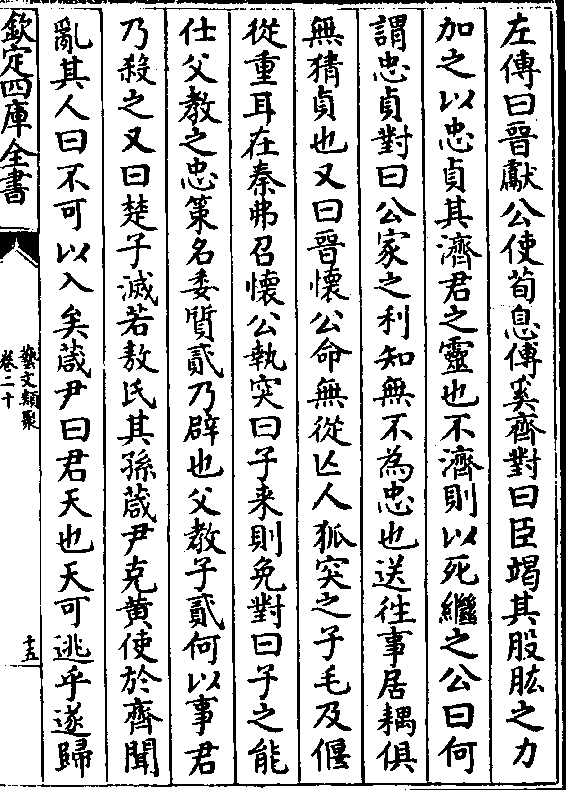 左傳曰晉獻公使荀息傅奚齊對曰臣竭其股肱之力
加之以忠貞其濟君之靈也不濟則以死繼之公曰何
謂忠貞對曰公家之利知無不為忠也送往事居耦俱
無猜貞也又曰晉懷公命無從亾人狐突之子毛及偃
從重耳在秦弗召懷公執突曰子来則免對曰子之能
仕父教之忠策名委質貳乃辟也父教子貳何以事君
乃殺之又曰楚子滅若敖氏其孫葴尹克黄使於齊聞
亂其人曰不可以入矣葴尹曰君天也天可逃乎遂歸
欽定四庫全書
藝文類聚
卷二十
十五